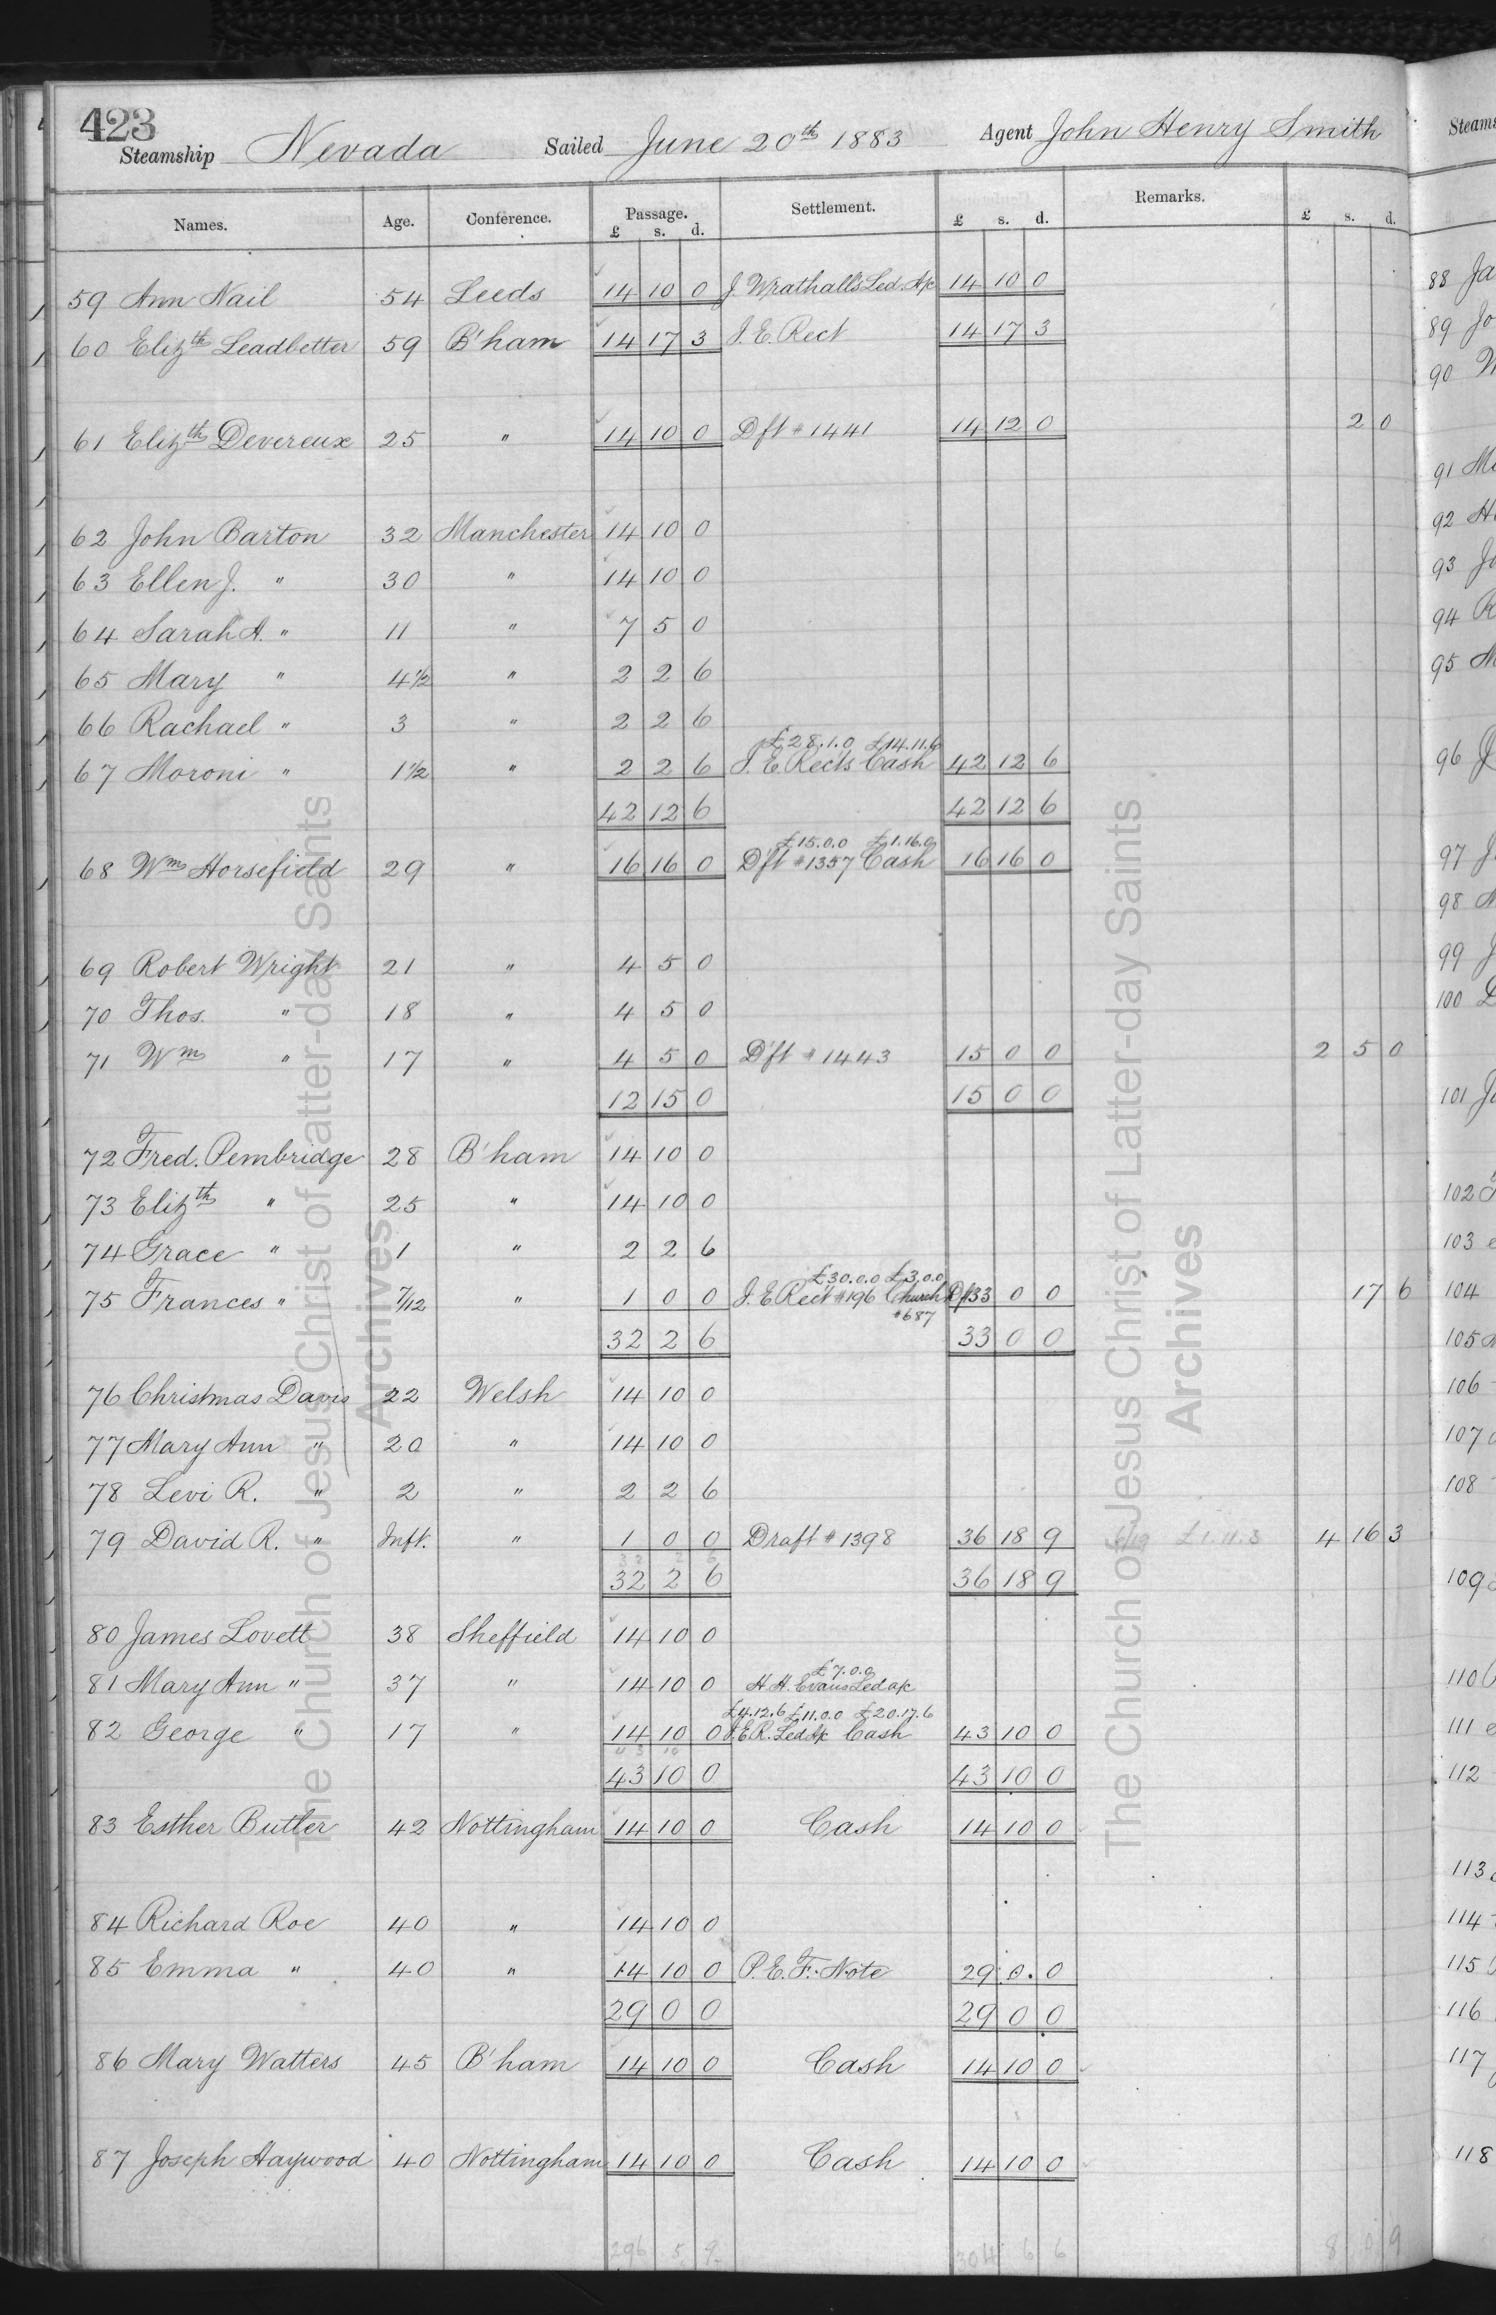 423
Steamship Nevada Sailed June 20th 1883 Agent John Henry Smith
Names. Age. Conference. Passage. Settlement. £ s. d. Remarks. £ s. d.
£ s. d.
59 Ann Nail 54 Leeds 14 10 0 J. Wrathall's Led. A/c 14 10 0
60 Elizth Leadbetter 59 B'ham 14 17 3 I. E. Rect 14 17 3
61 Elizth Devereux 25 " 14 10 0 Dft #1441 14 12 0 2 0
62 John Barton 32 Manchester 14 10 0
63 Ellen J. " 30 " 14 10 0
64 Sarah A. " 11 " 7 5 0
65 Mary " 4½ " 2 2 6
66 Rachael " 3 " 2 2 6
£28.1.0 £14.11.6
67 Moroni " 1½ " 2 2 6 I. E. Rects Cash 42 12 6
42 12 6 42 12 6
£15.0.0 £1.16.0
68 Wm Horsefield 29 " 16 16 0 Dft #1357 Cash 16 16 0
69 Robert Wright 21 " 4 5 0
70 Thos. " 18 " 4 5 0
71 Wm " 17 " 4 5 0 Dft #1443 15 0 0 2 5 0
12 15 0 15 0 0
72 Fred. Pembridge 28 B'ham 14 10 0
73 Elizth " 25 " 14 10 0
74 Grace " 1 " 2 2 6
£30.0.0 £3.0.0
75 Frances " 7/12 " 1 0 0 I. E. Rect #196 Church Df 33 0 0 17 6
#687
32 2 6 33 0 0
76 Christmas Davis 22 Welsh 14 10 0
77 Mary Ann " 20 " 14 10 0
78 Levi R. " 2 " 2 2 6
79 David R. " Inft. " 1 0 0 Draft #1398 36 18 9 £1.11.3 4 16 3
32 2 6
32 2 6 36 18 9
80 James Lovett 38 Sheffield 14 10 0
£7.0.0
81 Mary Ann " 37 " 14 10 0 H. H. Evans Led a/c
£4.12.6 £11.0.0 £20.17.6
82 George " 17 " 14 10 0 I.E.R. Led A/c Cash 43 10 0
43 10
43 10 0 43 10 0
83 Esther Butler 42 Nottingham 14 10 0 Cash 14 10 0
84 Richard Roe 40 " 14 10 0
85 Emma " 40 " 14 10 0 P. E. F. Note 29 0 0
29 0 0 29 0 0
86 Mary Watters 45 B'ham 14 10 0 Cash 14 10 0
87 Joseph Haywood 40 Nottingham 14 10 0 Cash 14 10 0
296 5 9 304 6 6 8 0 9
The Church of Jesus Christ of Latter-day Saints
Archives
The Church of Jesus Christ of Latter-day Saints
Archives
Steams
88 Ja
89 Jo
90
91
92 H
93 Jo
94 R
95 M
96
97 J
98
99 J
100
101 Jo
102
103
104
105
106
107
108
109
110
111
112
113
114
115
116
117
118